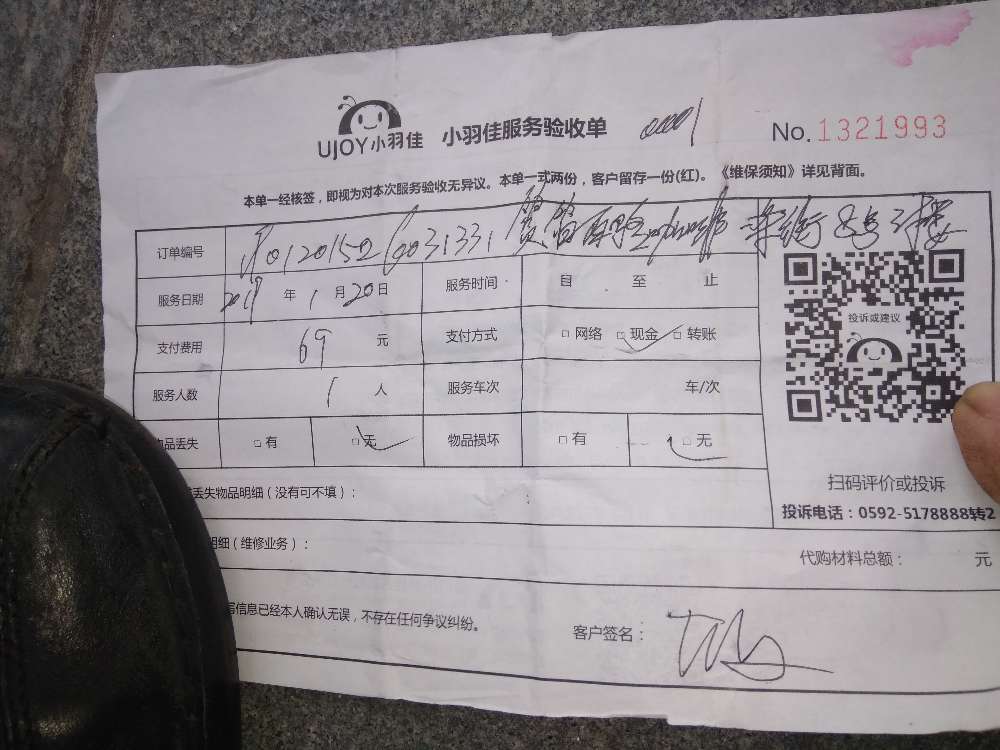 UJOY小羽佳 小羽佳服务验收单 No.1321993
本单一经核签，即视为对本次服务验收无异议。本单一式两份，客户留存一份(红)。《维保须知》详见背面。
订单编号
服务日期 年 1 月 20 日 服务时间 自 至 止
支付费用 69 元 支付方式 □ 网络 □ 现金 □ 转账
服务人数 1 人 服务车次 车/次
品丢失 □ 有 □ 无 物品损坏 □ 有 □ 无
投诉或建议
扫码评价或投诉
投诉电话：0592-5178888转2
丢失物品明细（没有可不填）：
明细（维修业务）：
代购材料总额： 元
写信息已经本人确认无误，不存在任何争议纠纷。
客户签名：